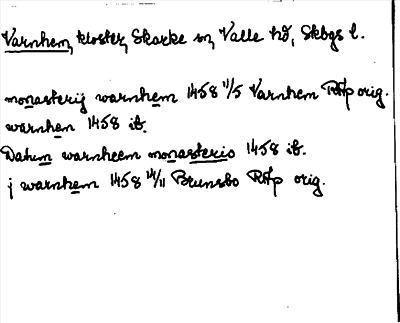 Varnhem, kloster, Skarke sn, Valle hd, Skbgs l.
monasterij warnhem 1458 11/5 Varnhem RAp orig.
warnhen 1458 ib.
Datum warnheem monasterio 1458 ib.
j warnhem 1458 14/11 Brunsbo RAp orig.